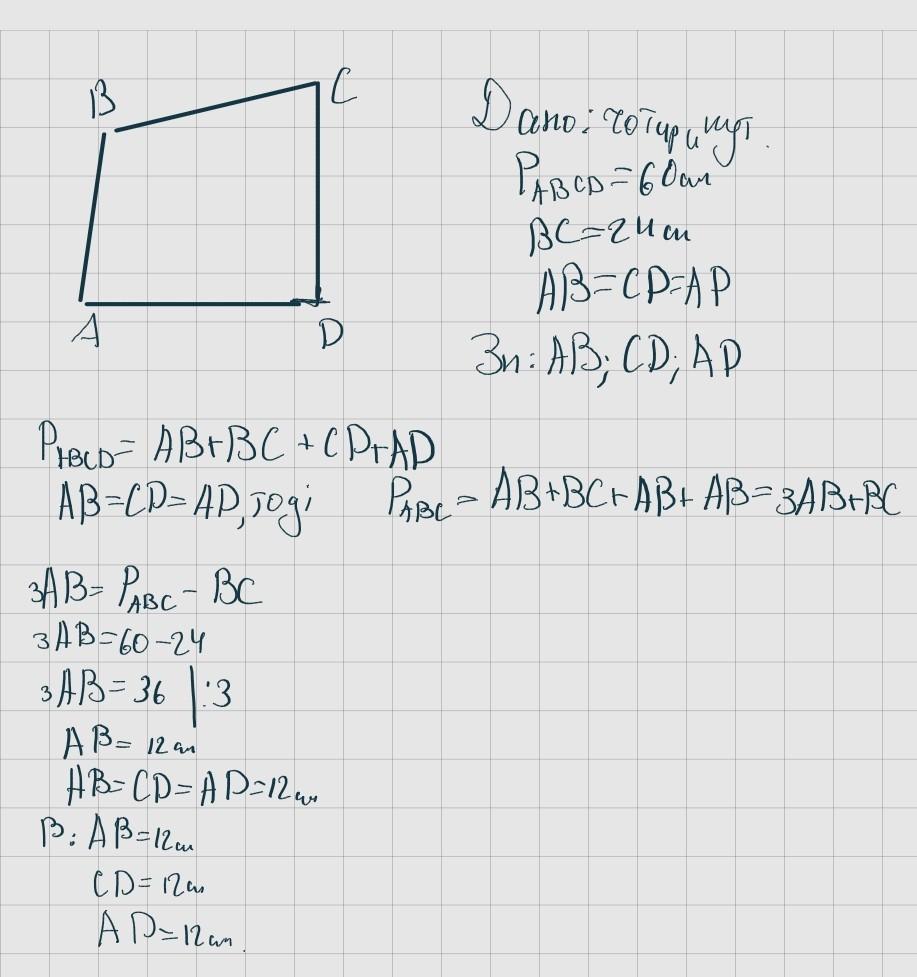 B
C
A
D
Дано: чотирикут.
P_ABCD = 60 см
BC = 24 см
AB = CD = AD
Зн: AB; CD; AD
P_ABCD = AB + BC + CD + AD
AB = CD = AD, тоді P_ABC = AB + BC + AB + AB = 3AB + BC
3AB = P_ABC - BC
3AB = 60 - 24
3AB = 36 |:3
AB = 12 см
AB = CD = AD = 12 см
В: AB = 12 см
CD = 12 см
AD = 12 см.